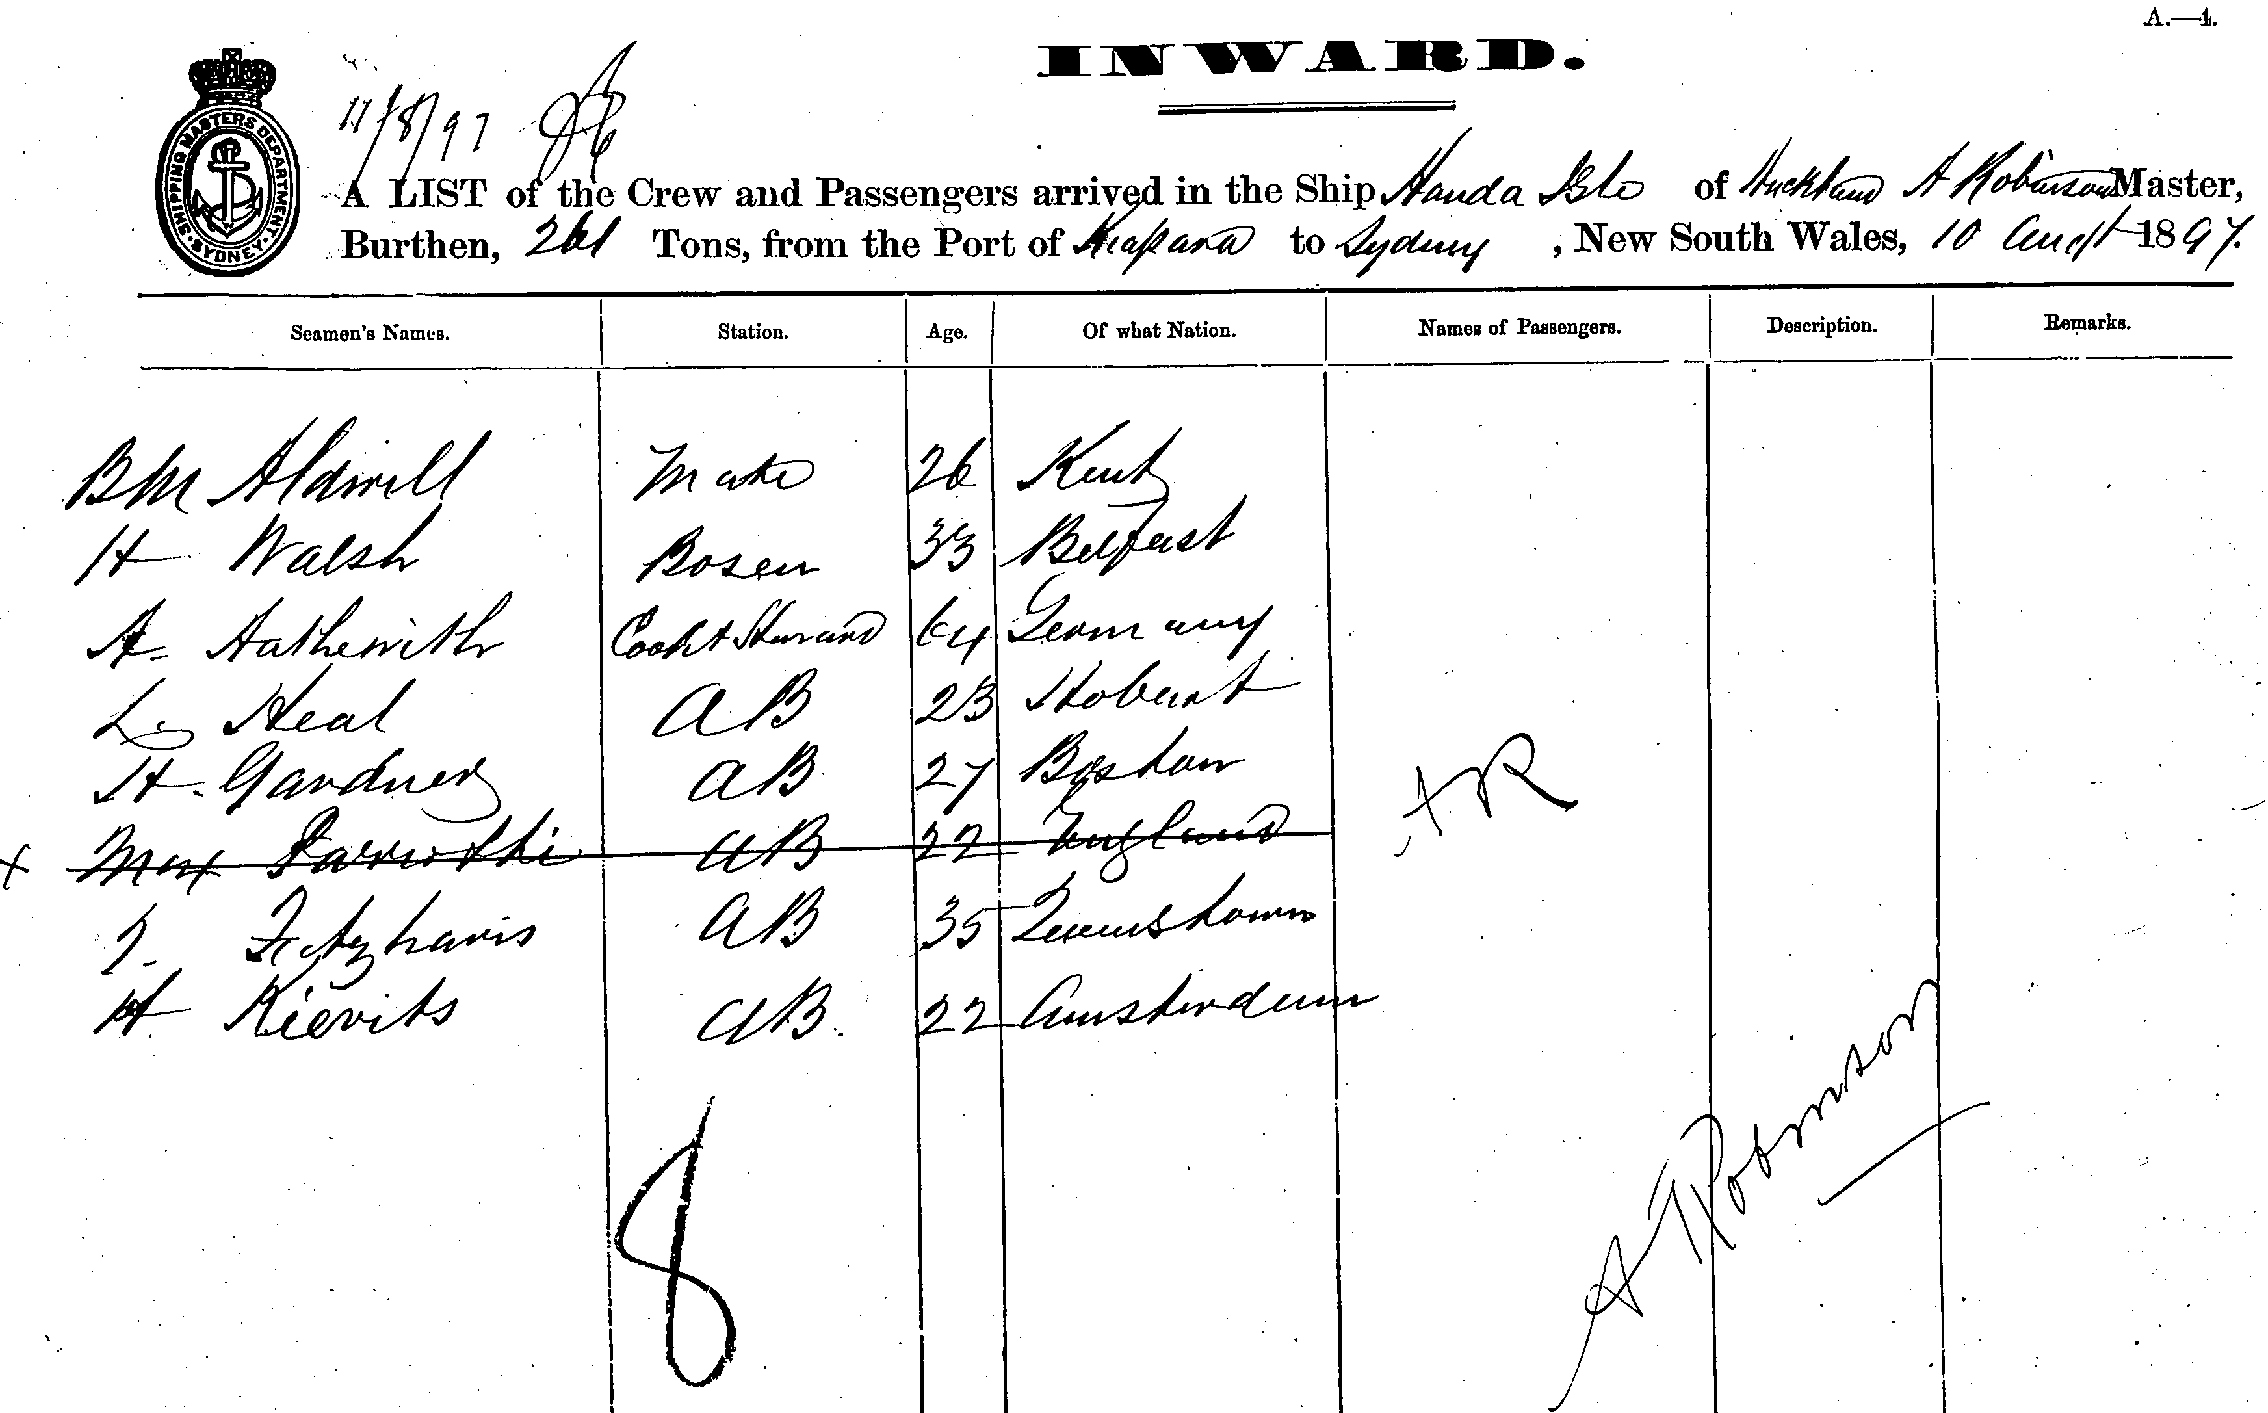 A.—1.
INWARD.
SHIPPING MASTERS DEPARTMENT. SYDNEY.
11/8/97
A LIST of the Crew and Passengers arrived in the Ship Handa Isle of Auckland A Robinson Master,
Burthen, 261 Tons, from the Port of Kiapara to Sydney, New South Wales, 10 Augst 1897.
Seamen's Names. Station. Age. Of what Nation. Names of Passengers. Description. Remarks.
B M Aldwell Mate 26 Kent
H Walsh Bosen 33 Belfast
A. Cook & Steward 64 Germany
L. Heal AB 23 Hobart
H. Gardner AB 27 Boston
x Max AB 22 England
AR
J. Fitzharris AB 35 Queenstown
H. Kievits AB. 22 Amsterdam
8
A Robinson